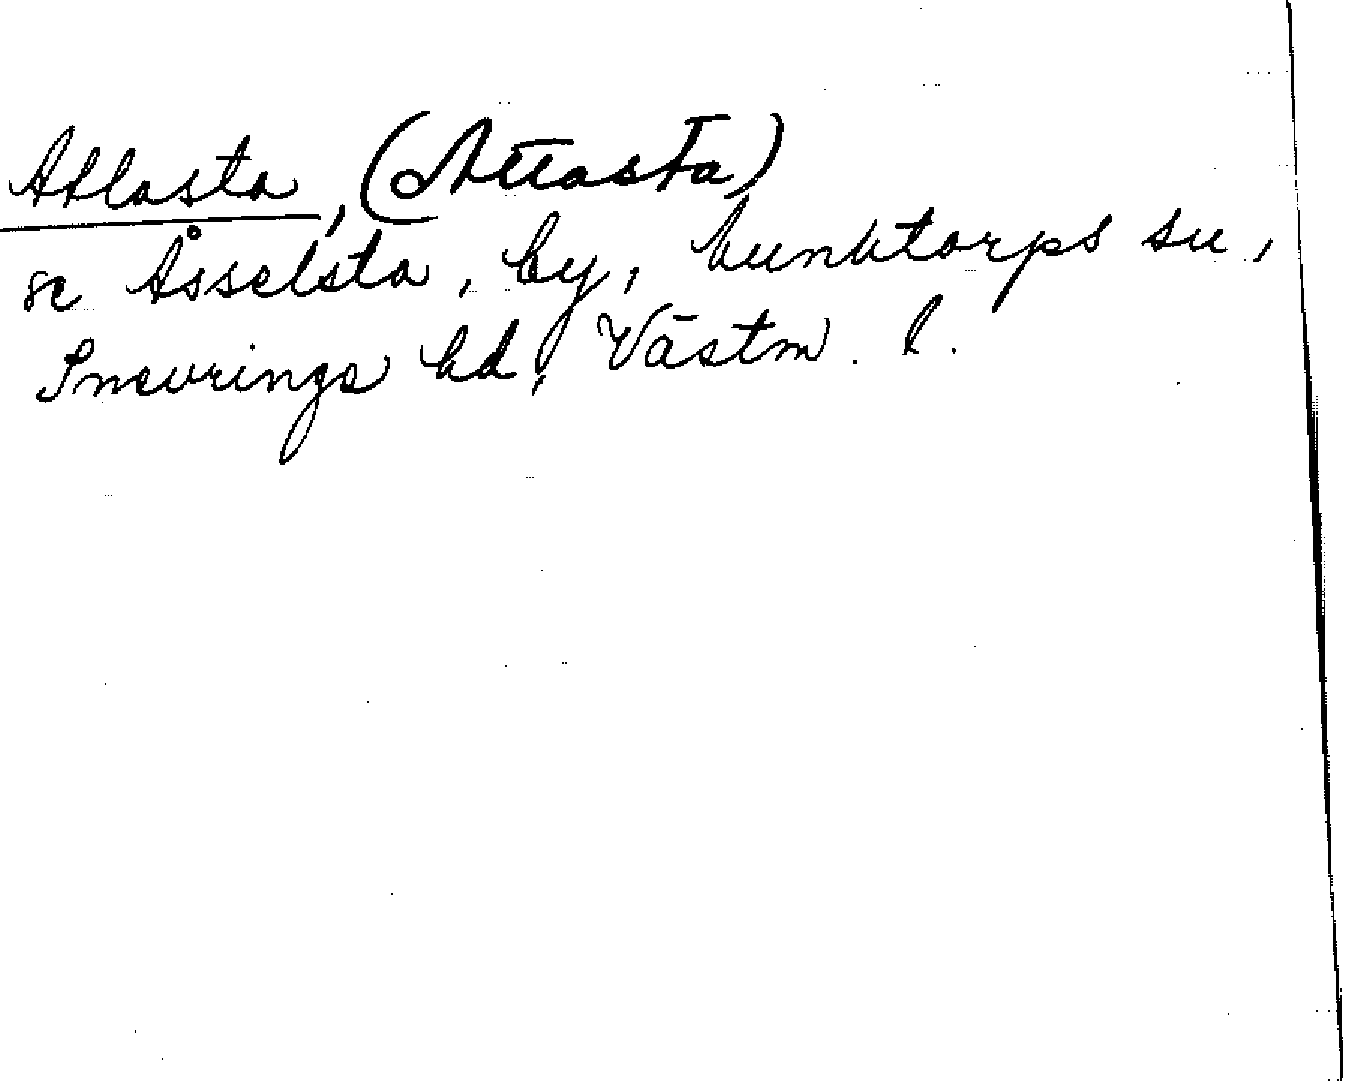 Atlasta, (Attasta)
se Åsselsta, by, Munktorps sn,
Snevringe hd, Västm. l.